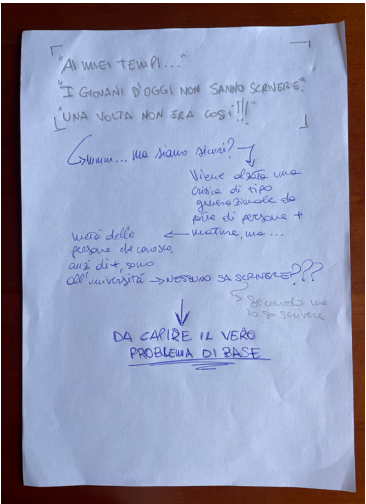 "AI MIEI TEMPI..."
"I GIOVANI D'OGGI NON SANNO SCRIVERE"
"UNA VOLTA NON ERA COSÌ!!!"
mmm... ma siamo sicuri?
Viene alzata una
critica di tipo
generazionale da
parte di persone +
mature, ma...
metà delle
persone che conosco,
anzi di +, sono
all'università → NESSUNO SA SCRIVERE???
secondo me
io so scrivere
DA CAPIRE IL VERO
PROBLEMA DI BASE